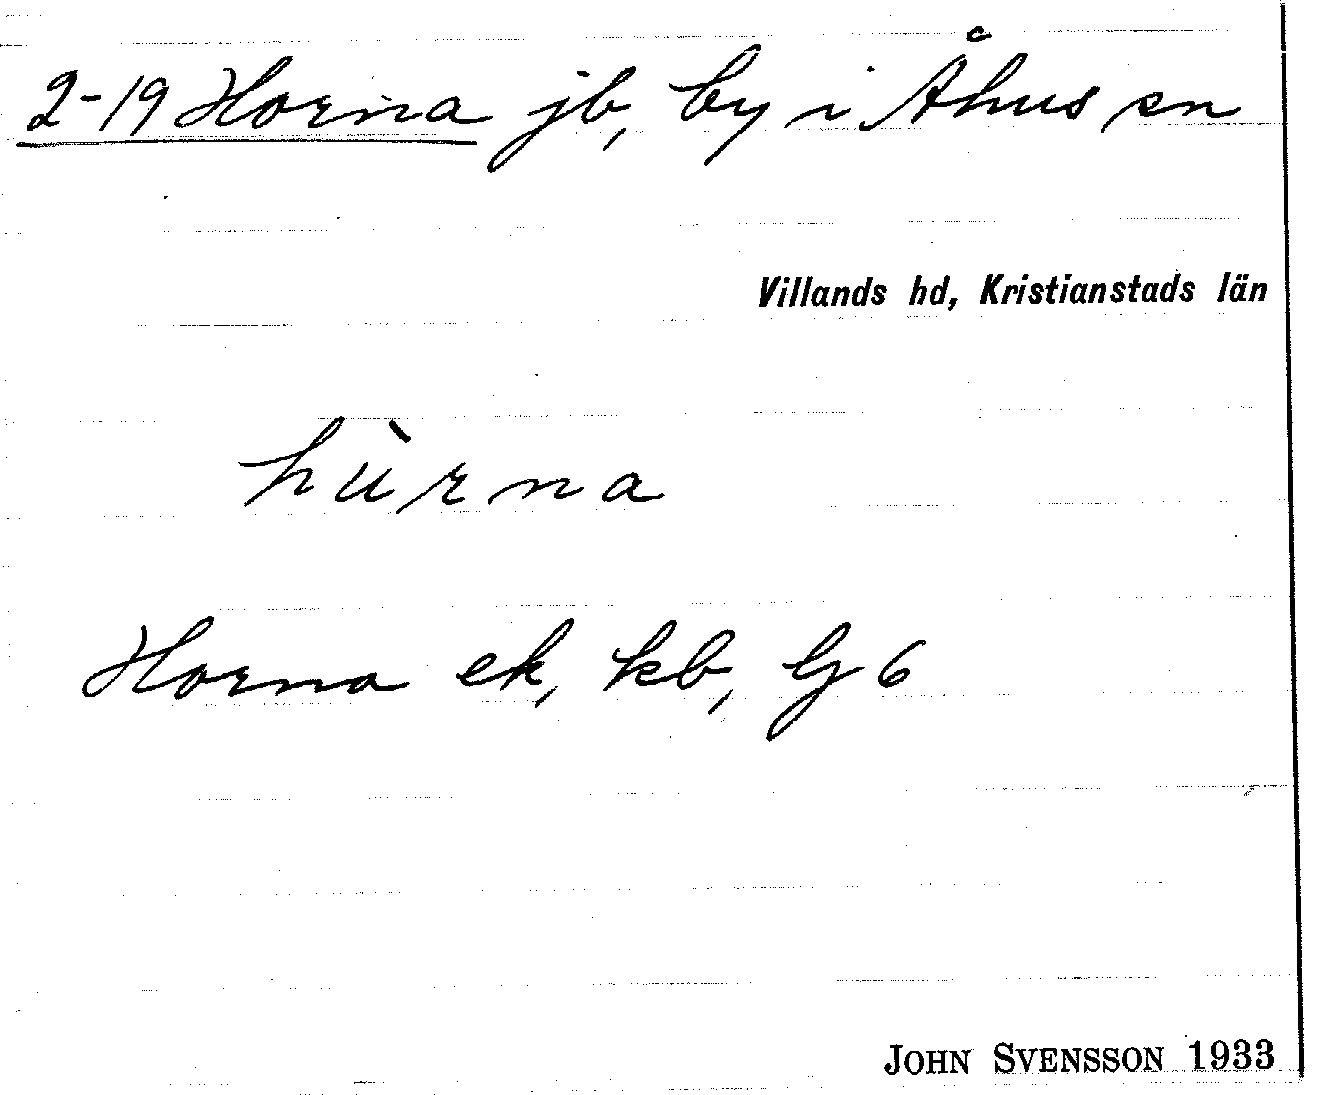 2-19 Horna jb, by i Åhus sn
Villands hd, Kristianstads län
hùrna
Horna ek, kb, Gj 6
JOHN SVENSSON 1933